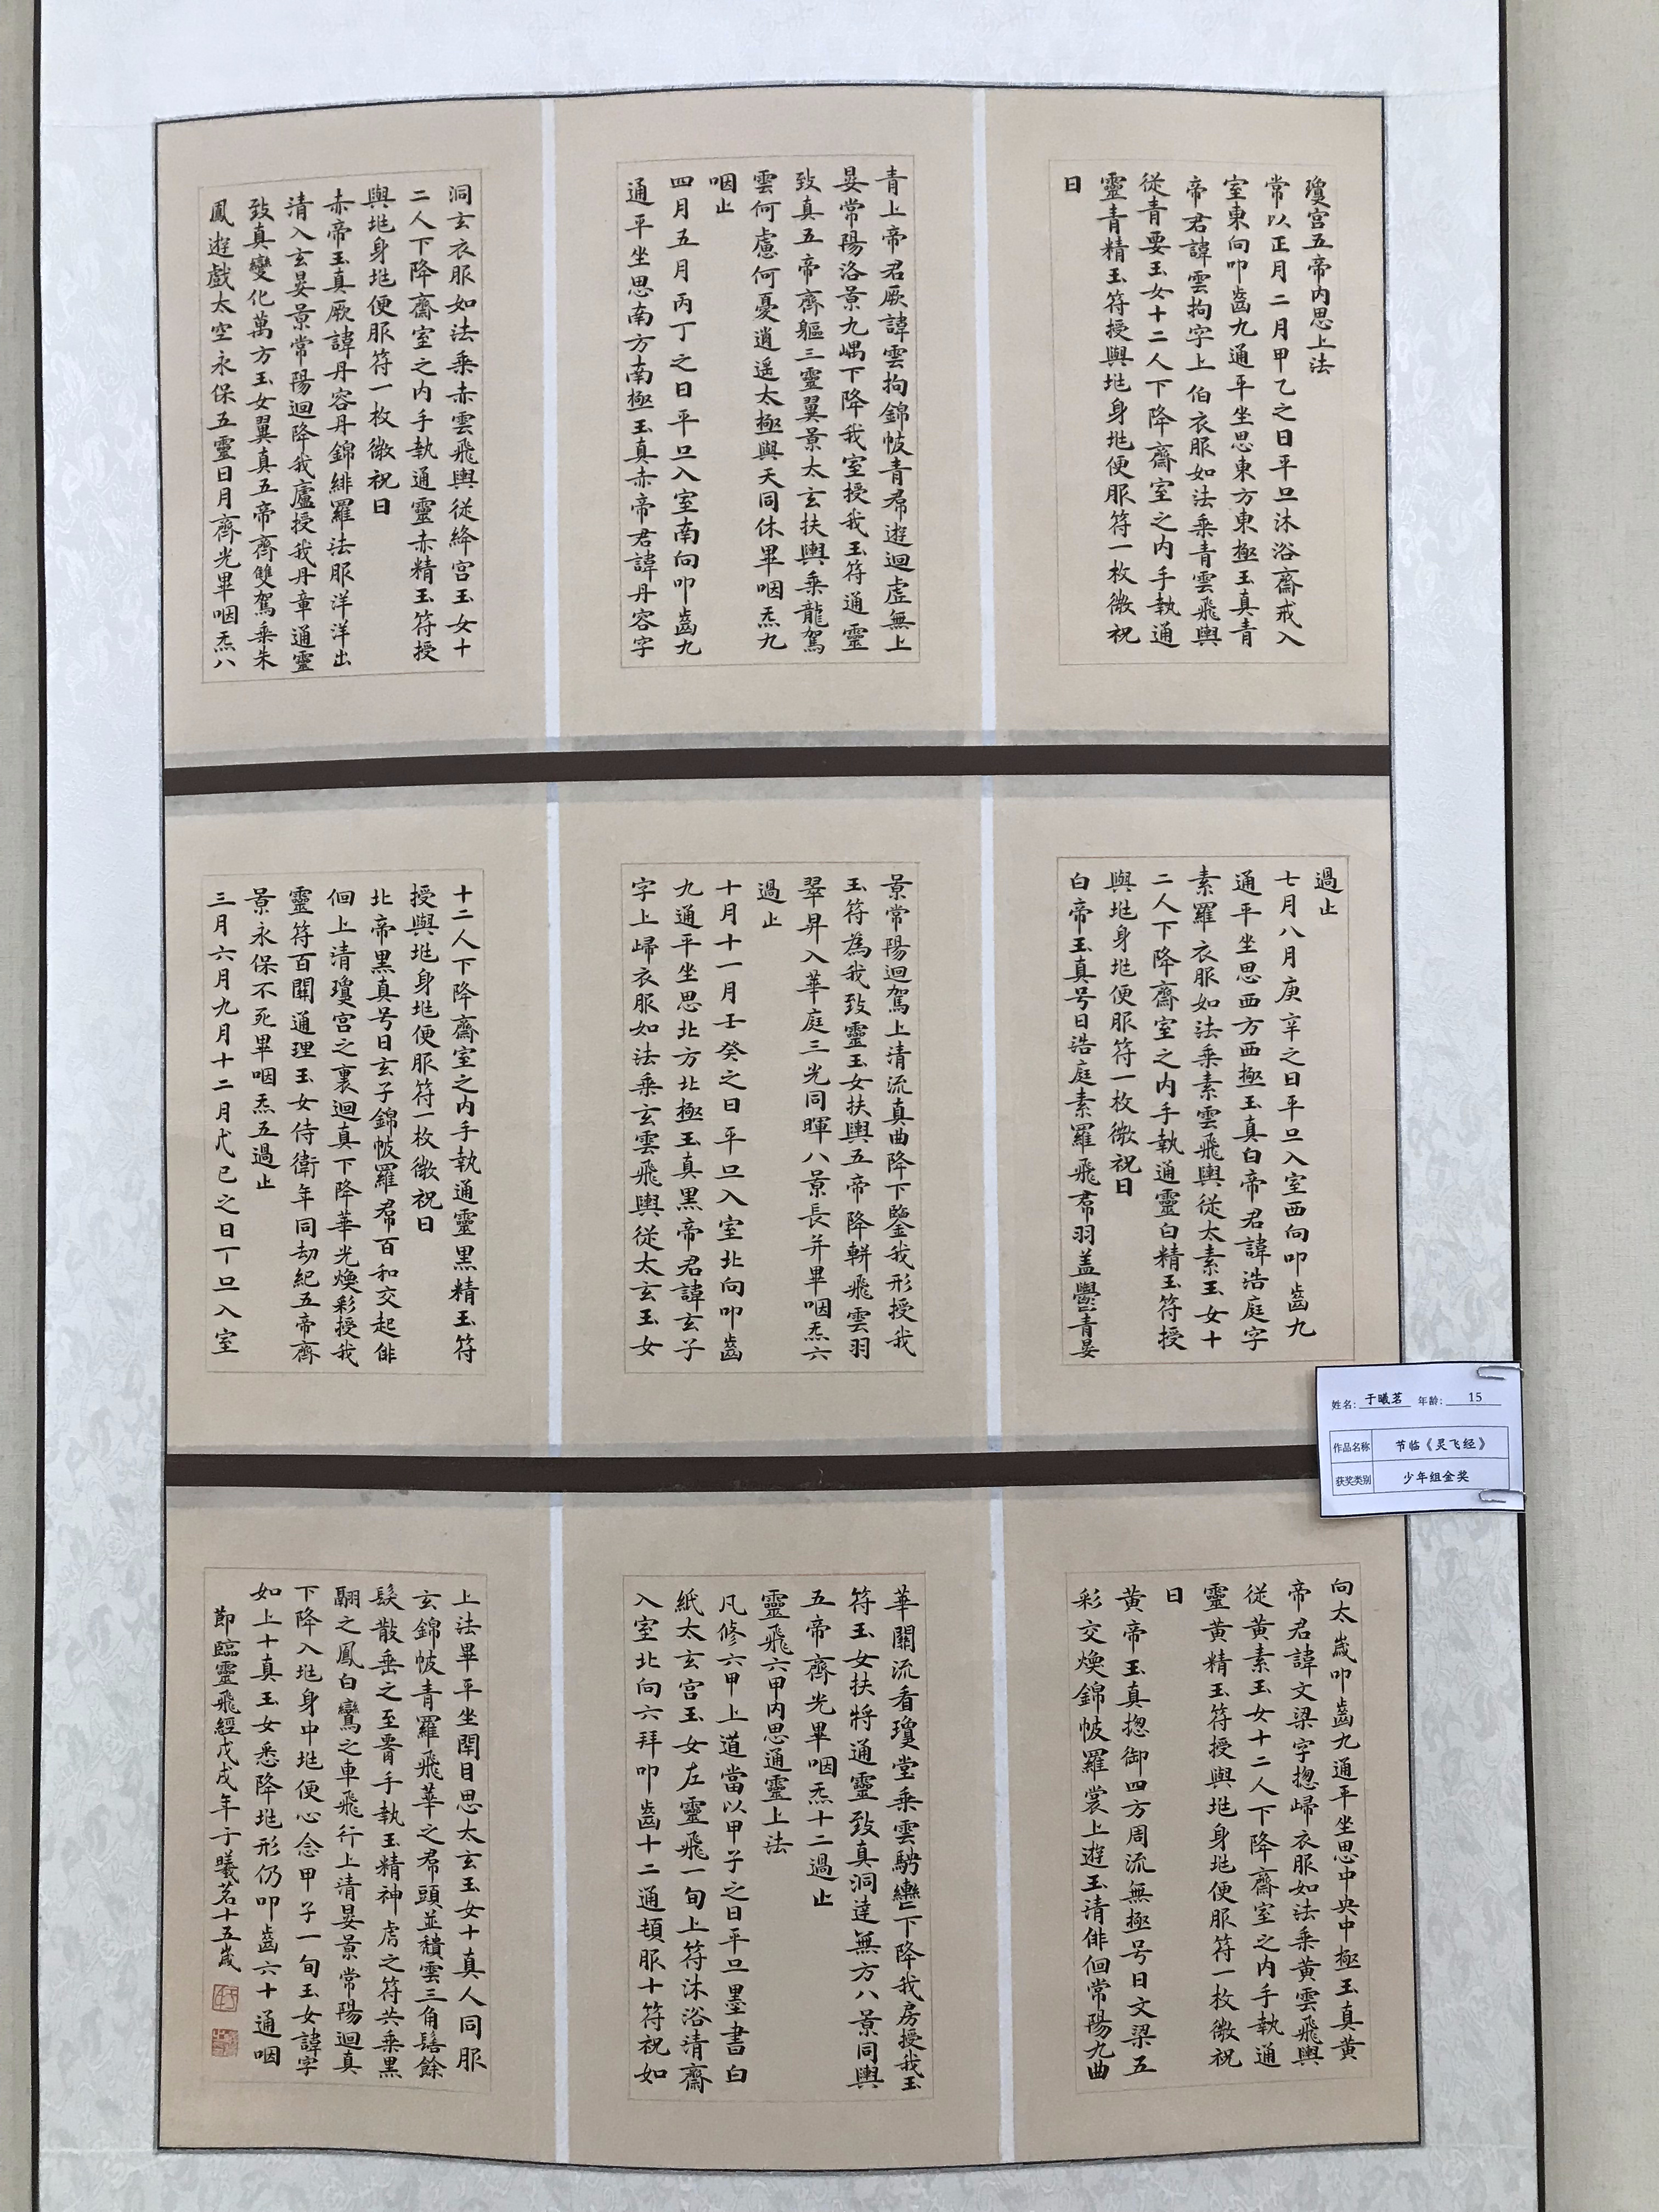 瓊宮五帝內思上法
常以正月二月甲乙之日平旦沐浴齋戒入
室東向叩齒九通平坐思東方東極玉真青
帝君諱雲拘字上伯衣服如法乘青雲飛輿
從青要玉女十二人下降齋室之內手執通
靈青精玉符授與兆身兆便服符一枚微祝
曰
青上帝君厥諱雲拘錦帔青帬遊迴虛無上
晏常陽洛景九嵎下降我室授我玉符通靈
致真五帝齊軀三靈翼景太玄扶輿乘龍駕
雲何慮何憂逍遥太極與天同休畢咽炁九
咽止
四月五月丙丁之日平旦入室南向叩齒九
通平坐思南方南極玉真赤帝君諱丹容字
洞玄衣服如法乘赤雲飛輿從絳宮玉女十
二人下降齋室之內手執通靈赤精玉符授
與兆身兆便服符一枚微祝曰
赤帝玉真厥諱丹容丹錦緋羅法服洋洋出
清入玄晏景常陽迴降我廬授我丹章通靈
致真變化萬方玉女翼真五帝齊雙駕乘朱
鳳遊戲太空永保五靈日月齊光畢咽炁八
過止
七月八月庚辛之日平旦入室西向叩齒九
通平坐思西方西極玉真白帝君諱浩庭字
素羅衣服如法乘素雲飛輿從太素玉女十
二人下降齋室之內手執通靈白精玉符授
與兆身兆便服符一枚微祝曰
白帝玉真号曰浩庭素羅飛帬羽盖鬱青晏
景常陽迴駕上清流真曲降下鑒我形授我
玉符為我致靈玉女扶輿五帝降軿飛雲羽
翠昇入華庭三光同暉八景長并畢咽炁六
過止
十月十一月壬癸之日平旦入室北向叩齒
九通平坐思北方北極玉真黑帝君諱玄子
字上歸衣服如法乘玄雲飛輿從太玄玉女
十二人下降齋室之內手執通靈黑精玉符
授與兆身兆便服符一枚微祝曰
北帝黑真号曰玄子錦帔羅帬百和交起俳
佪上清瓊宮之裏迴真下降華光煥彩授我
靈符百關通理玉女侍衛年同劫紀五帝齊
景永保不死畢咽炁五過止
三月六月九月十二月戊己之日丁旦入室
向太歲叩齒九通平坐思中央中極玉真黄
帝君諱文梁字揔歸衣服如法乘黄雲飛輿
從黄素玉女十二人下降齋室之內手執通
靈黄精玉符授與兆身兆便服符一枚微祝
曰
黄帝玉真揔御四方周流無極号曰文梁五
彩交煥錦帔羅裳上遊玉清俳佪常陽九曲
華關流看瓊堂乘雲騁轡下降我房授我玉
符玉女扶將通靈致真洞達無方八景同輿
五帝齊光畢咽炁十二過止
靈飛六甲內思通靈上法
凡修六甲上道當以甲子之日平旦墨書白
紙太玄宮玉女左靈飛一旬上符沐浴清齋
入室北向六拜叩齒十二通頓服十符祝如
上法畢平坐閉目思太玄玉女十真人同服
玄錦帔青羅飛華之帬頭並穨雲三角髻餘
髮散垂之至䯗手執玉精神虎之符共乘黑
翮之鳳白鸞之車飛行上清晏景常陽迴真
下降入兆身中兆便心念甲子一旬玉女諱字
如上十真玉女悉降兆形仍叩齒六十通咽
節臨靈飛經戊戌年于曦茗十五歲
姓名: 于曦茗 年龄: 15
作品名称 节临《灵飞经》
获奖类别 少年组金奖